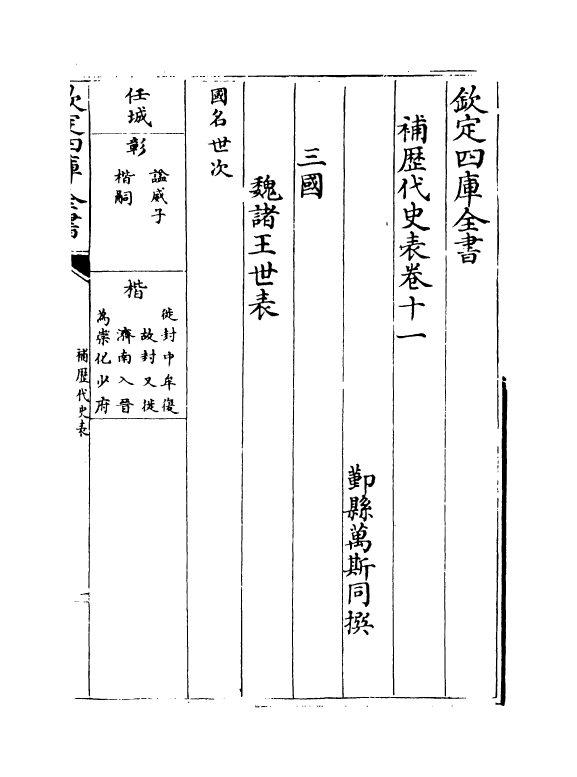 欽定四庫全書
補歴代史表卷十一
鄞縣萬斯同撰
三國
魏諸王世表
國名 世次
任城
彰
諡威子
楷嗣
楷
徙封中牟復
故封又徙
濟南入晉
為崇化少府
欽定四庫全書
補歴代史表